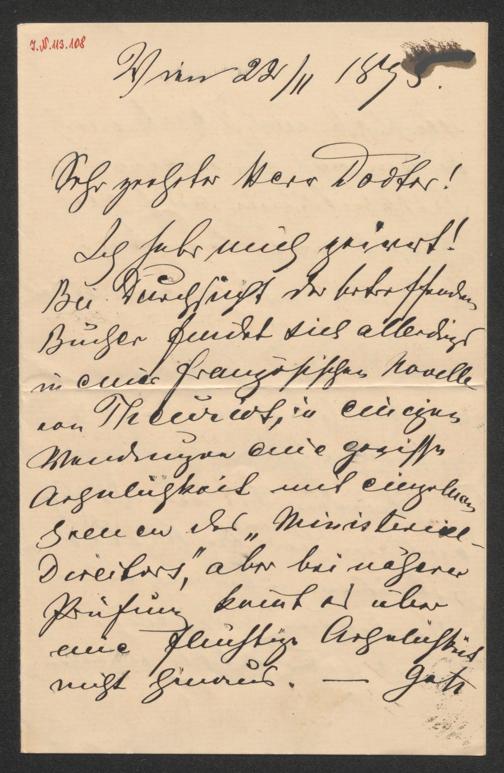 J.N. 113.108
Wien 22/11 1893.
Sehr geehrter Herr Doctor!
Ich habe mich geirrt!
Bei Durchsicht der betreffenden
Bücher findet sich allerdings
in einer französischen Novelle
von Theuriet, in einigen
Wendungen eine gewisse
Aehnlichkeit mit einzelnen
Scenen des "Ministerial-
Directors", aber bei näherer
Prüfung kommt es über
eine flüchtige Aehnlichkeit
nicht hinaus. —